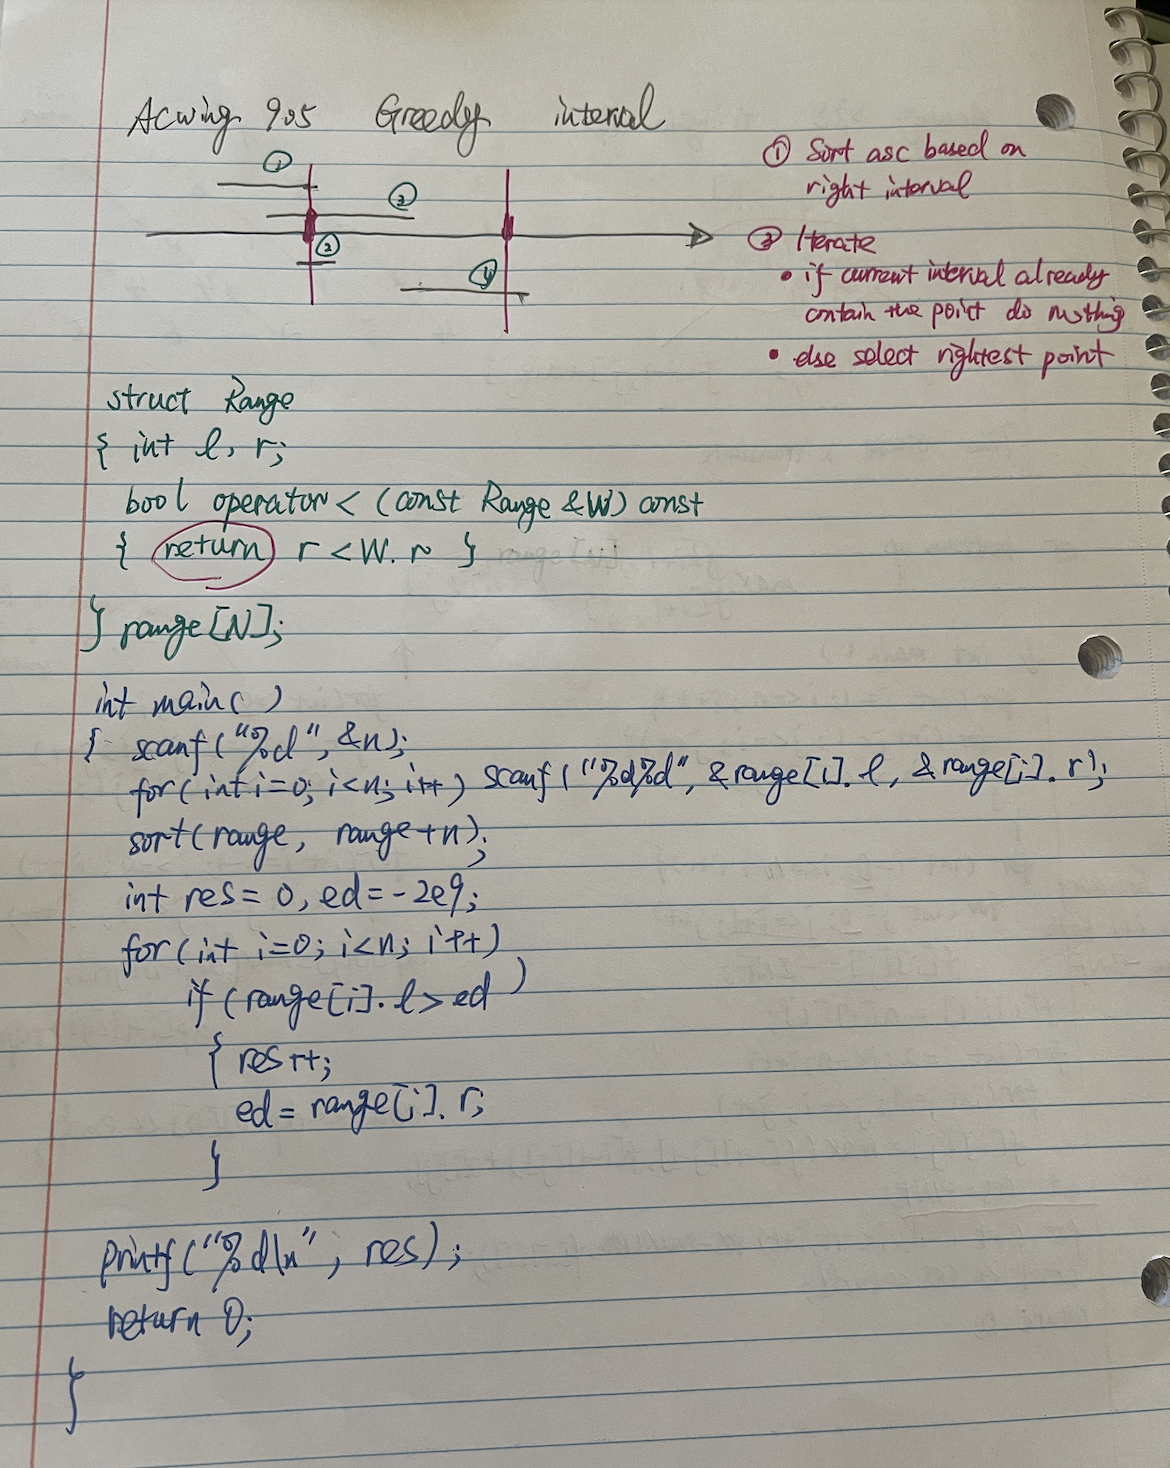 Acwing 905 Greedy interval
① ③
② ④
① Sort asc based on
right interval
② Iterate
• if current interval already
contain the point do nothing
• else select rightest point
struct Range
{ int l, r;
bool operator < (const Range &W) const
{ return r < W. r }
} range[N];
int main( )
{ scanf("%d", &n);
for(int i=0; i<n; i++) scanf("%d%d", &range[i]. l, &range[i]. r);
sort(range, range+n);
int res = 0, ed = -2e9;
for(int i=0; i<n; i++)
if (range[i]. l > ed )
{ res++;
ed = range[i]. r;
}
printf("%d\n", res);
return 0;
}